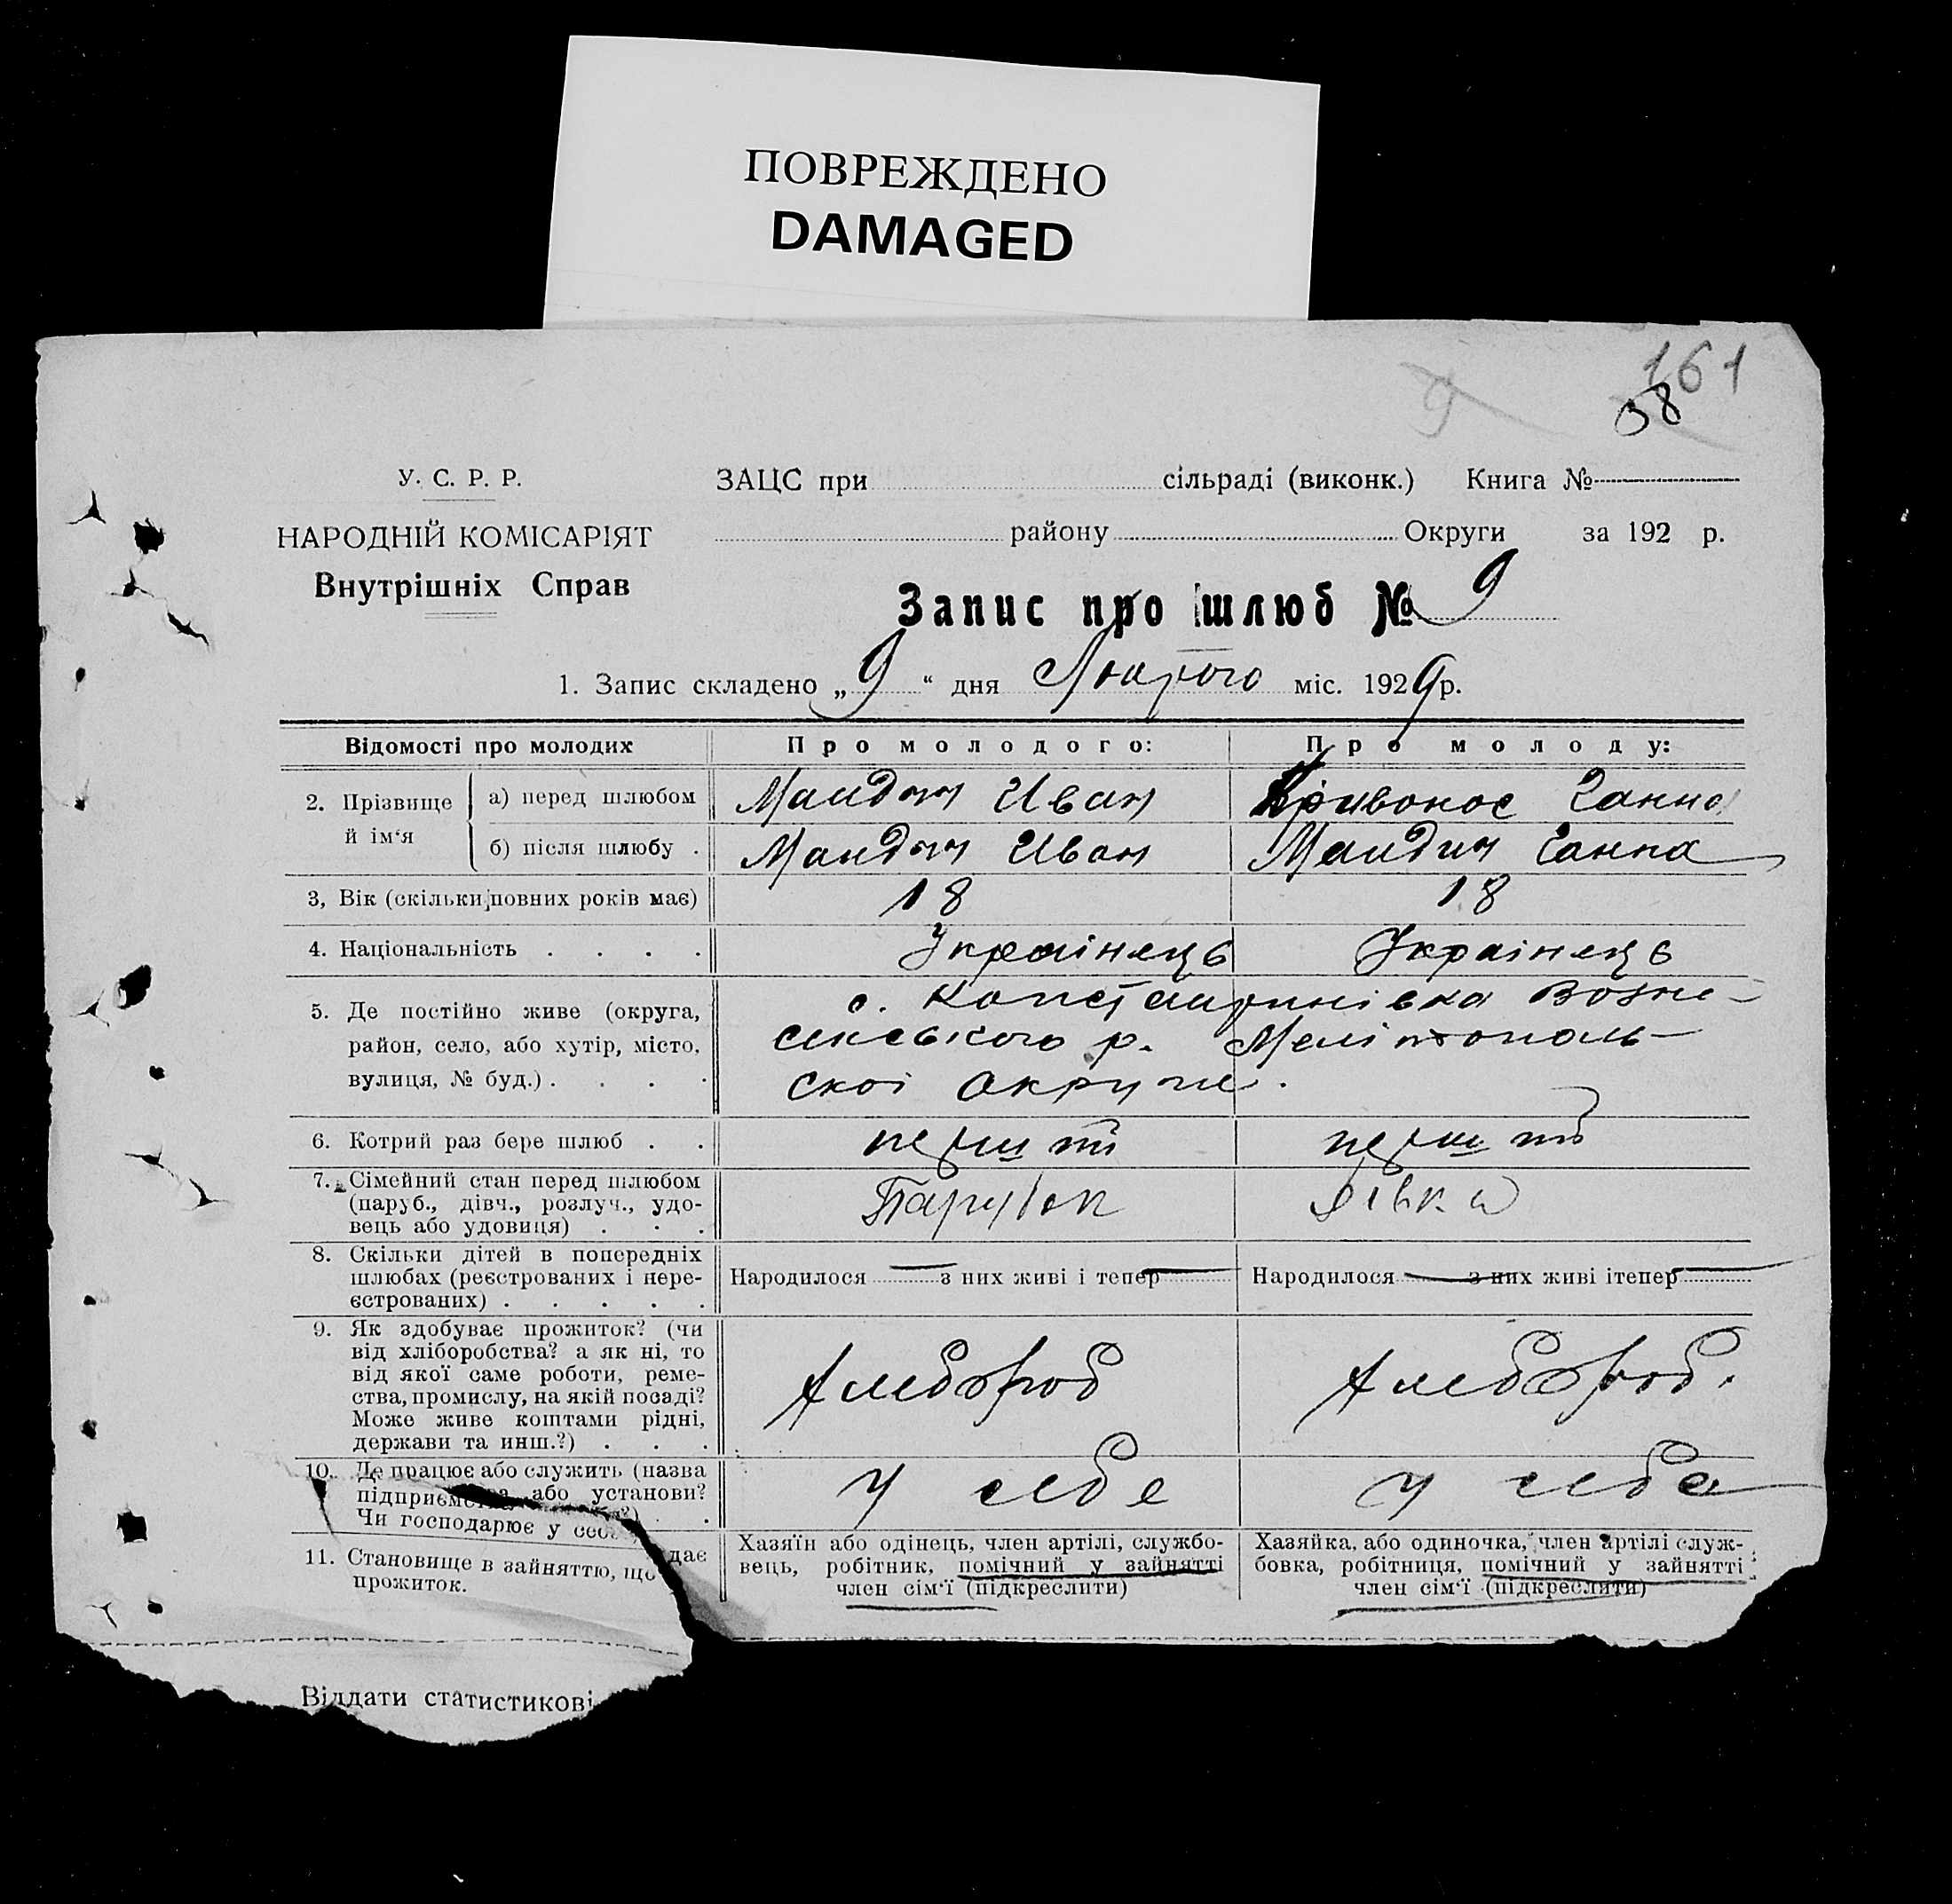 ПОВРЕЖДЕНО
DAMAGED
161
38
9
У. С. Р. Р.
НАРОДНІЙ КОМІСАРІЯТ
Внутрішніх Справ
ЗАЦС при сільраді (виконк.) Книга №
району Округи за 192 р.
Запис про шлюб № 9
1. Запис складено „9“ дня Лютого міс. 1929 р.
Відомості про молодих
Про молодого:
Про молоду:
2. Прізвище й ім‘я
а) перед шлюбом
Мандич Иван
Кривонос Ганна
б) після шлюбу .
Мандич Иван
Мандич Ганна
3, Вік (скільки повних років має)
18
18
4. Національність . . . .
Украінець
Украінець
5. Де постійно живе (округа,
район, село, або хутір, місто,
вулиця, № буд.) . . . .
с. Константинівка Возне-
сенського р. Мелітополь-
скоі Округи.
6. Котрий раз бере шлюб . .
перший
перший
7. Сімейний стан перед шлюбом
(паруб., дівч., розлуч., удо-
вець або удовиця) . . .
Парубок
Дівка
8. Скільки дітей в попередніх
шлюбах (реєстрованих і нере-
єстрованих) . . . . .
Народилося — з них живі і тепер —
Народилося — з них живі ітепер —
9. Як здобуває прожиток? (чи
від хліборобства? а як ні, то
від якої саме роботи, реме-
ства, промислу, на якій посаді?
Може живе коштами рідні,
держави та инш.?) . . .
Хлебороб
Хлебороб.
10. Де працює або служить (назва
або установи?
Чи господарює у
у себе
у себе
11. Становище в зайняттю, що дає
прожиток.
Хазяїн або одінець, член артілі, службо-
вець, робітник, помічний у зайнятті
член сім‘ї (підкреслити)
Хазяйка, або одиночка, член артілі служ-
бовка, робітниця, помічний у зайнятті
член сім‘ї (підкреслити)
Віддати статистикові